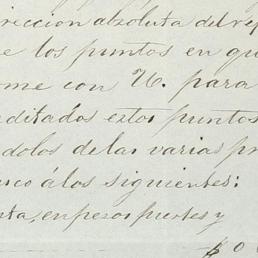 reccion absoluta del rep
e los puntos en qu
ome con U. para
editados estos puntos
dolos de las varias pr
usco á los siguientes:
nta, en pesos fuertes y
$ 0 0